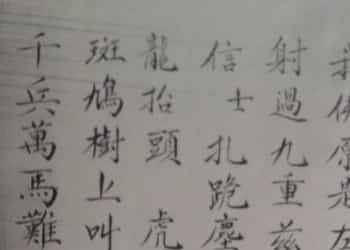 我佛原是左
射過九重茲
信士扎跪塵
龍抬頭 虎
斑鳩樹上叫
千兵萬馬難